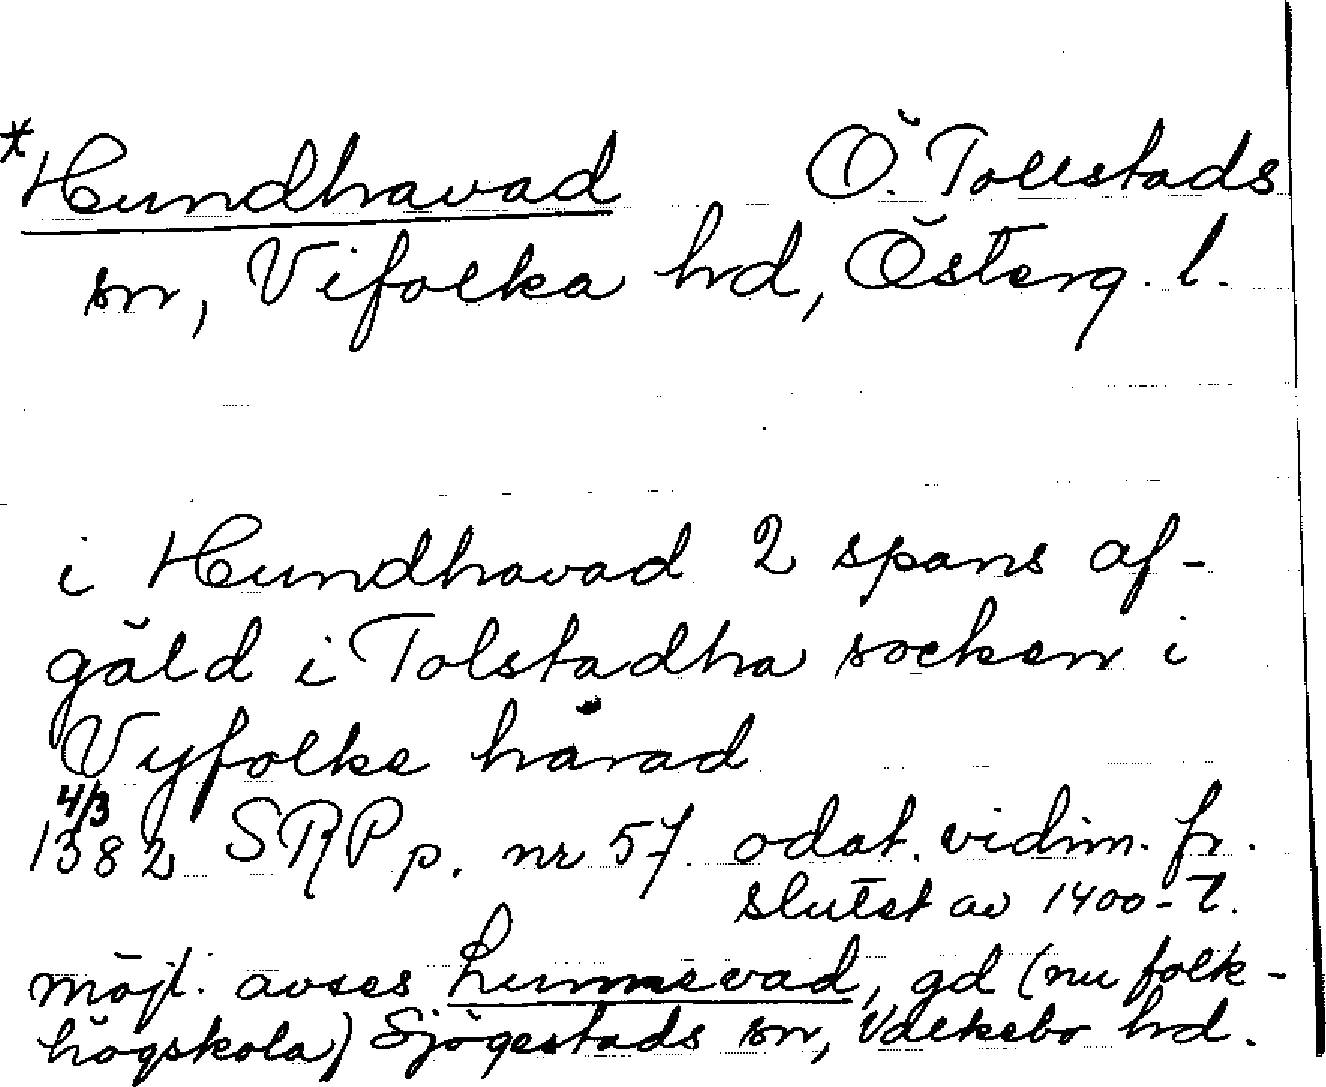 *Hundhavad Ö. Tollstads
sn, Vifolka hd, Österg. l.
i Hundhavad 2 spans af-
gäld i Tolstadha socken i
Vyfolke härad
4/3
1382 SRP p. nr 57. odat. vidim. fr.
slutet av 1400-t.
möjl. avses Lunnevad, gd (nu folk-
högskola) Sjögestads sn, Valkebo hd.